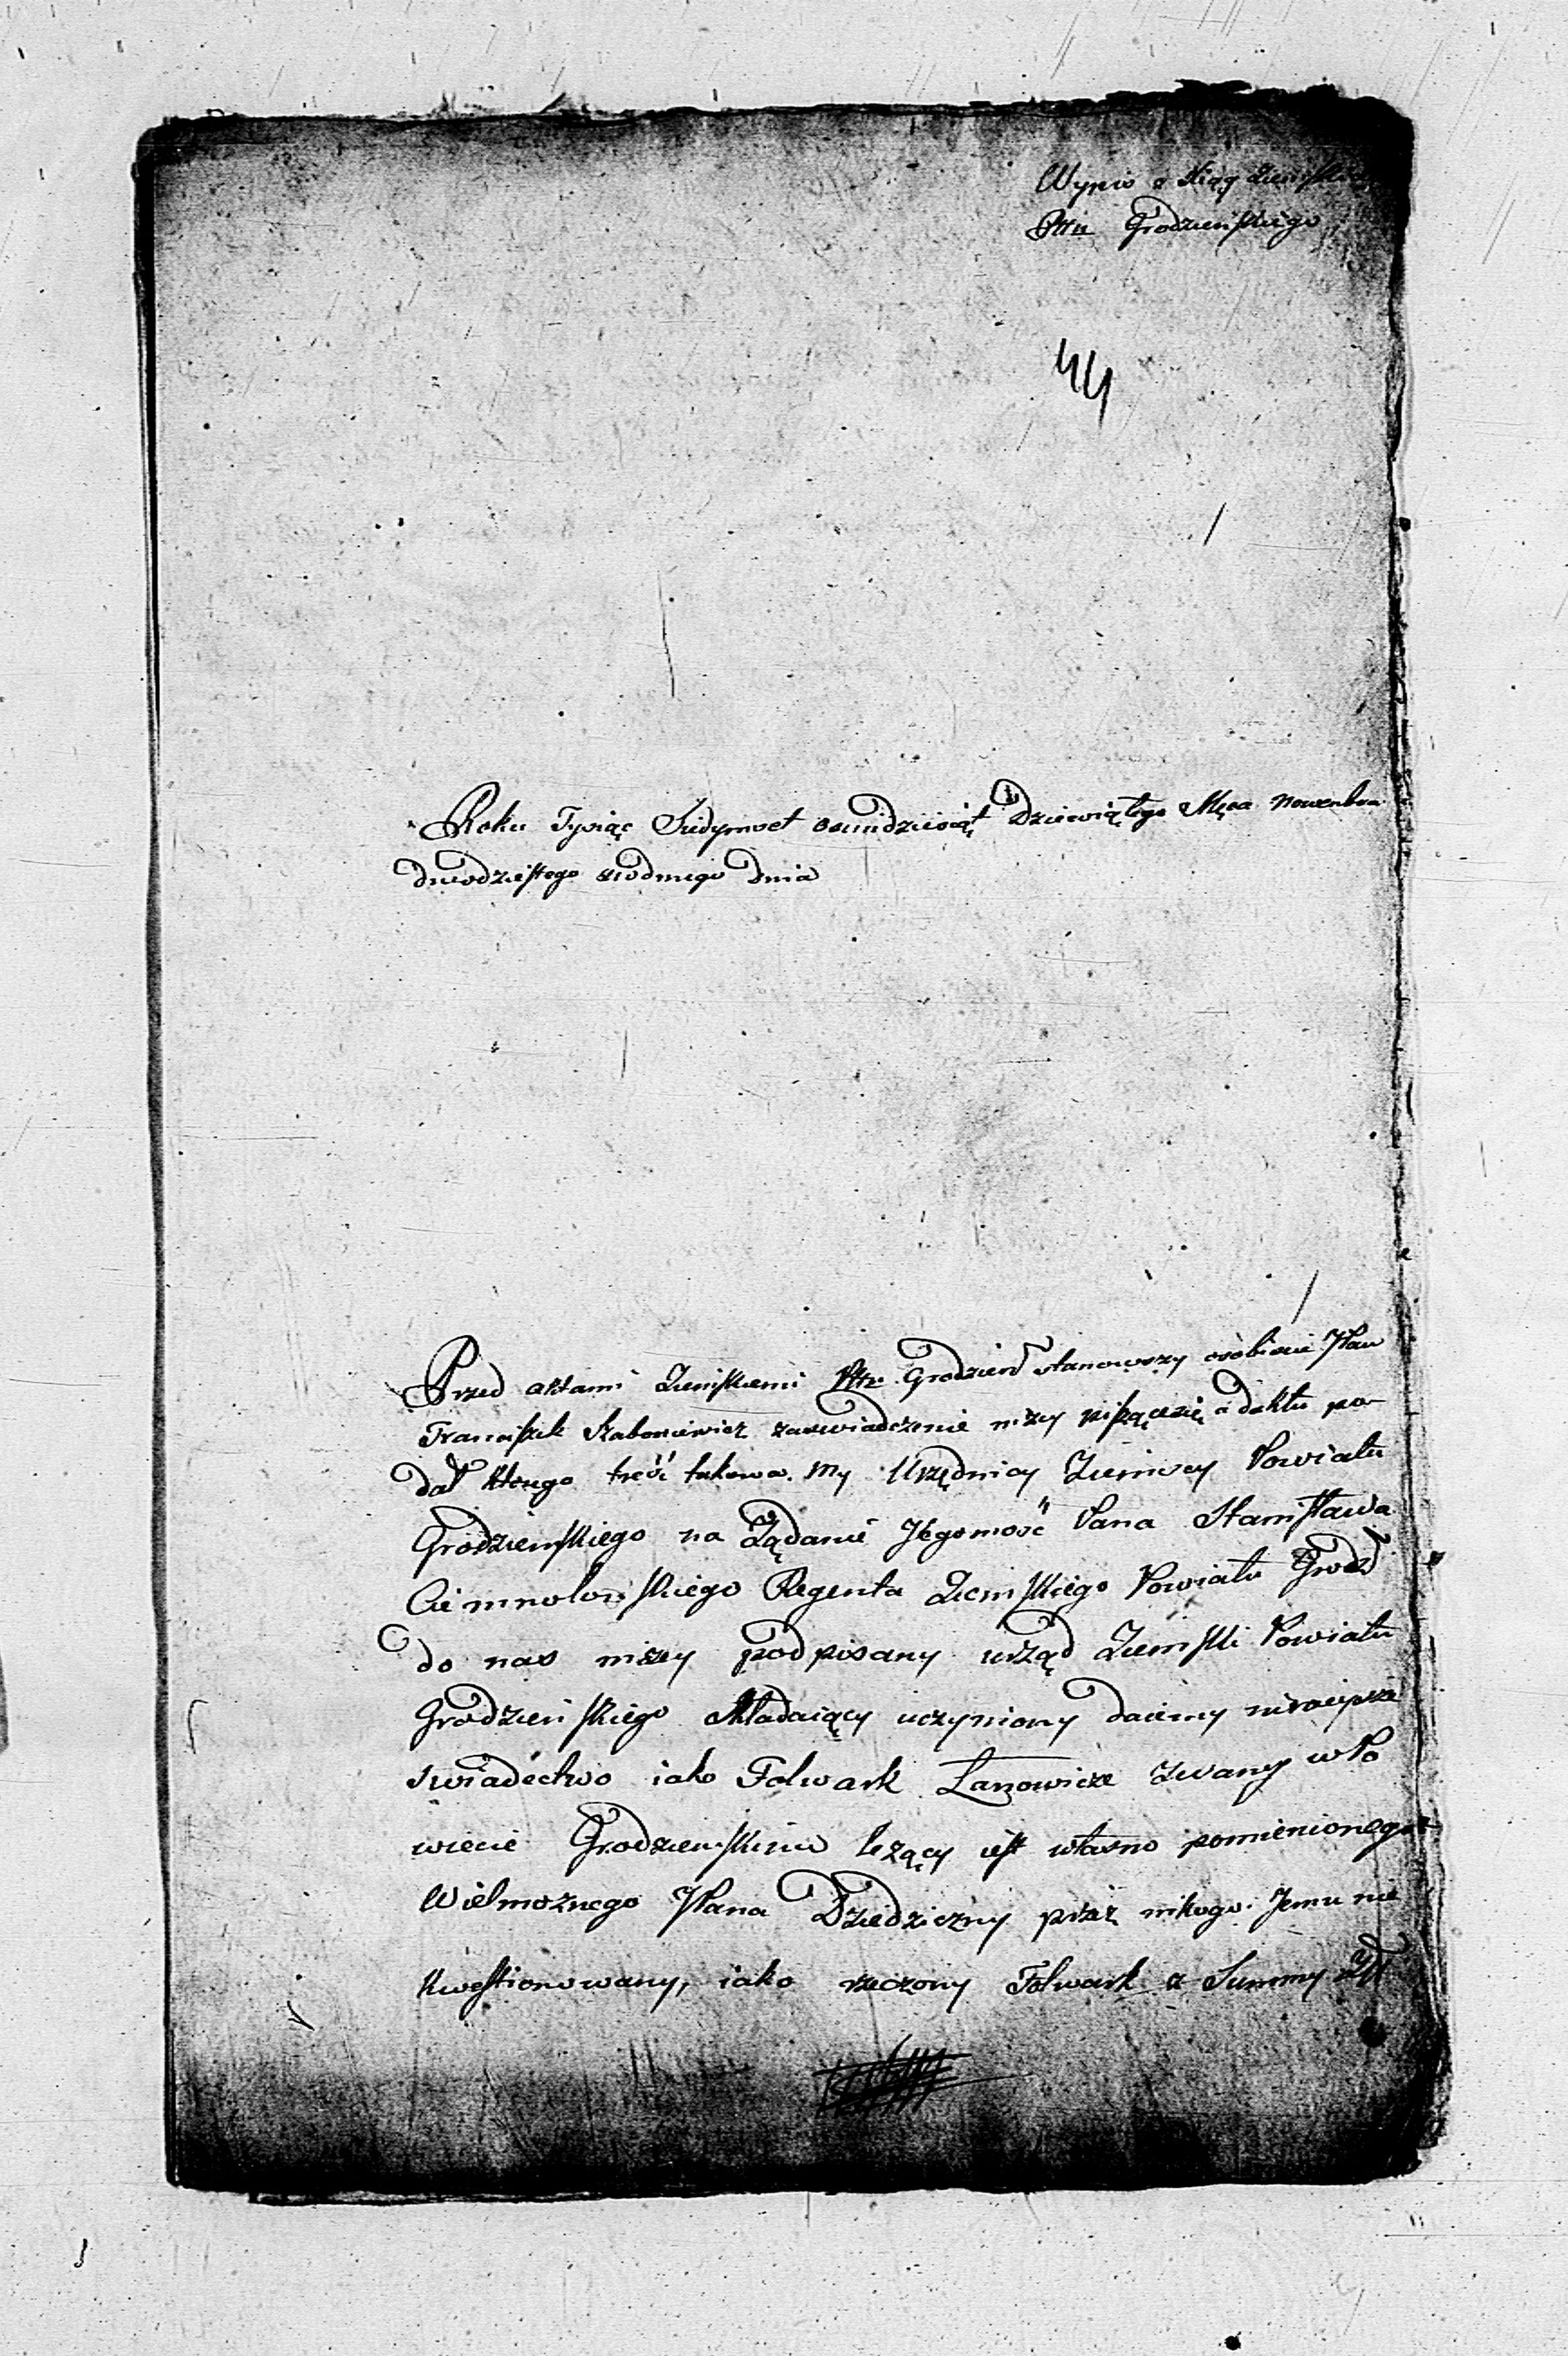 Wypis z Xiąg Ziemskich
Pttu Grodzieńskiego
44
Roku Tysiąc Siedymset osmidziesiąt Dziewiątego Mca Nowembra
dwudziestego siodmego Dnia
Przed aktami Ziemskiemi Pttu Grodzień stanowszy osobiscie JPan
Franciszek zaswiadczenie niżey piszącesię a daktu po-
dał ktorego treść takowa. My Urzędnicy Ziemscy Powiatu
Grodzienskiego na Żądanie Jegomość Pana Stanisława
Ciemnołońskiego Regenta Ziemskiego Powiatu Grodź
do nas niżey podpisany urząd Ziemski Powiatu
Grodzieńskiego składaiący uczyniony daiemy ninieysze
swiadectwo iako Folwark Łazowicze zwany w Po
wiecie Grodzienskim leżący iest własno pomienionego
Wielmożnego JPana Dziedziczny przez nikogo Jemu nie
kwestionowany, iako rzeczony Folwark z Summy